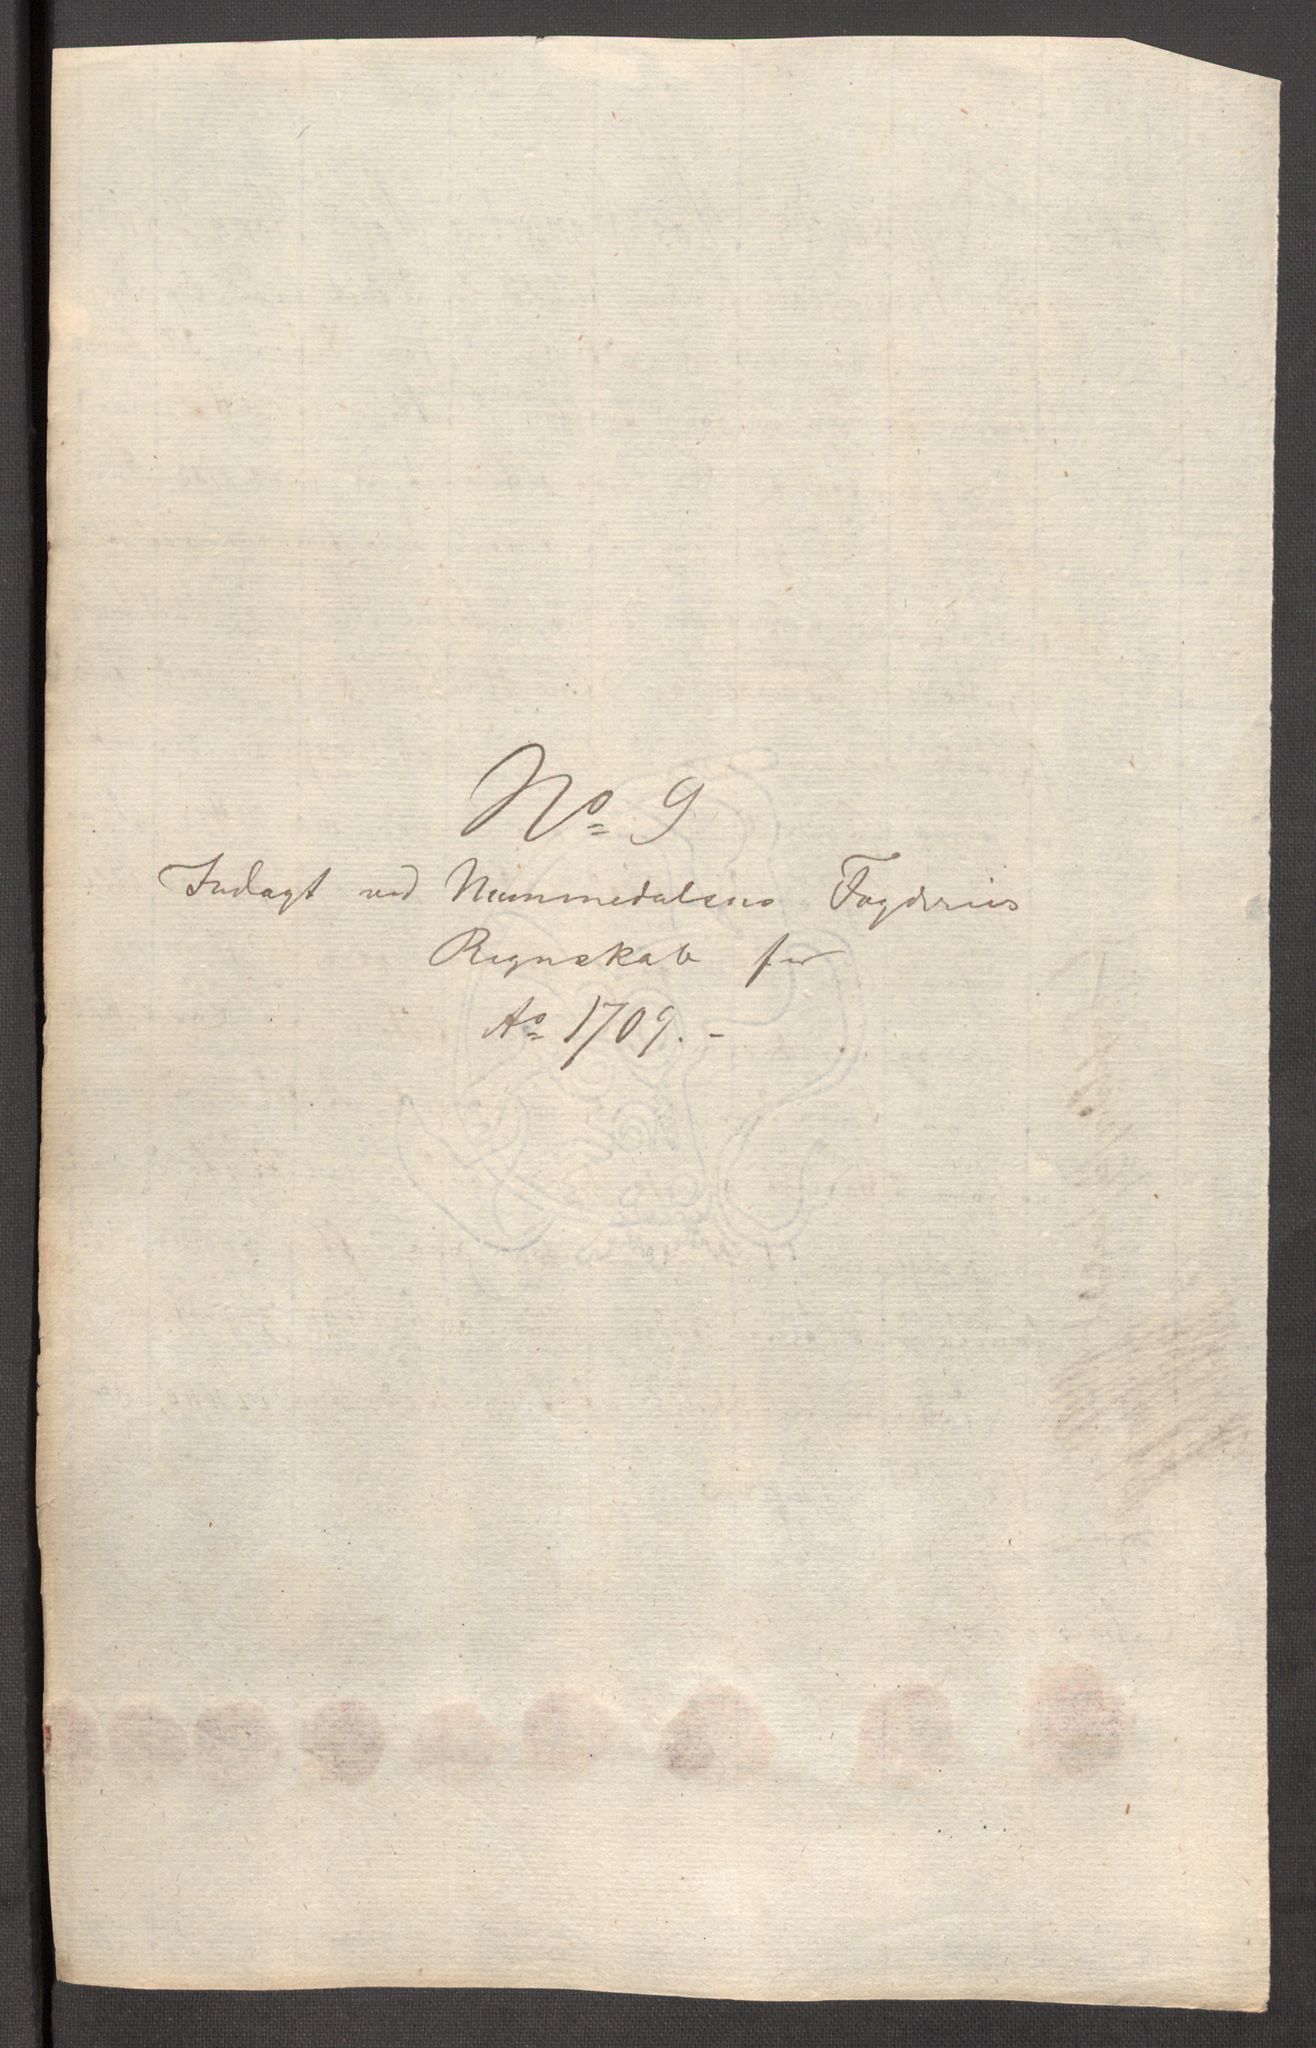 No 9
Indlagt ved Nummedalens Fogderies
Regnskab for
Ao 1709. -